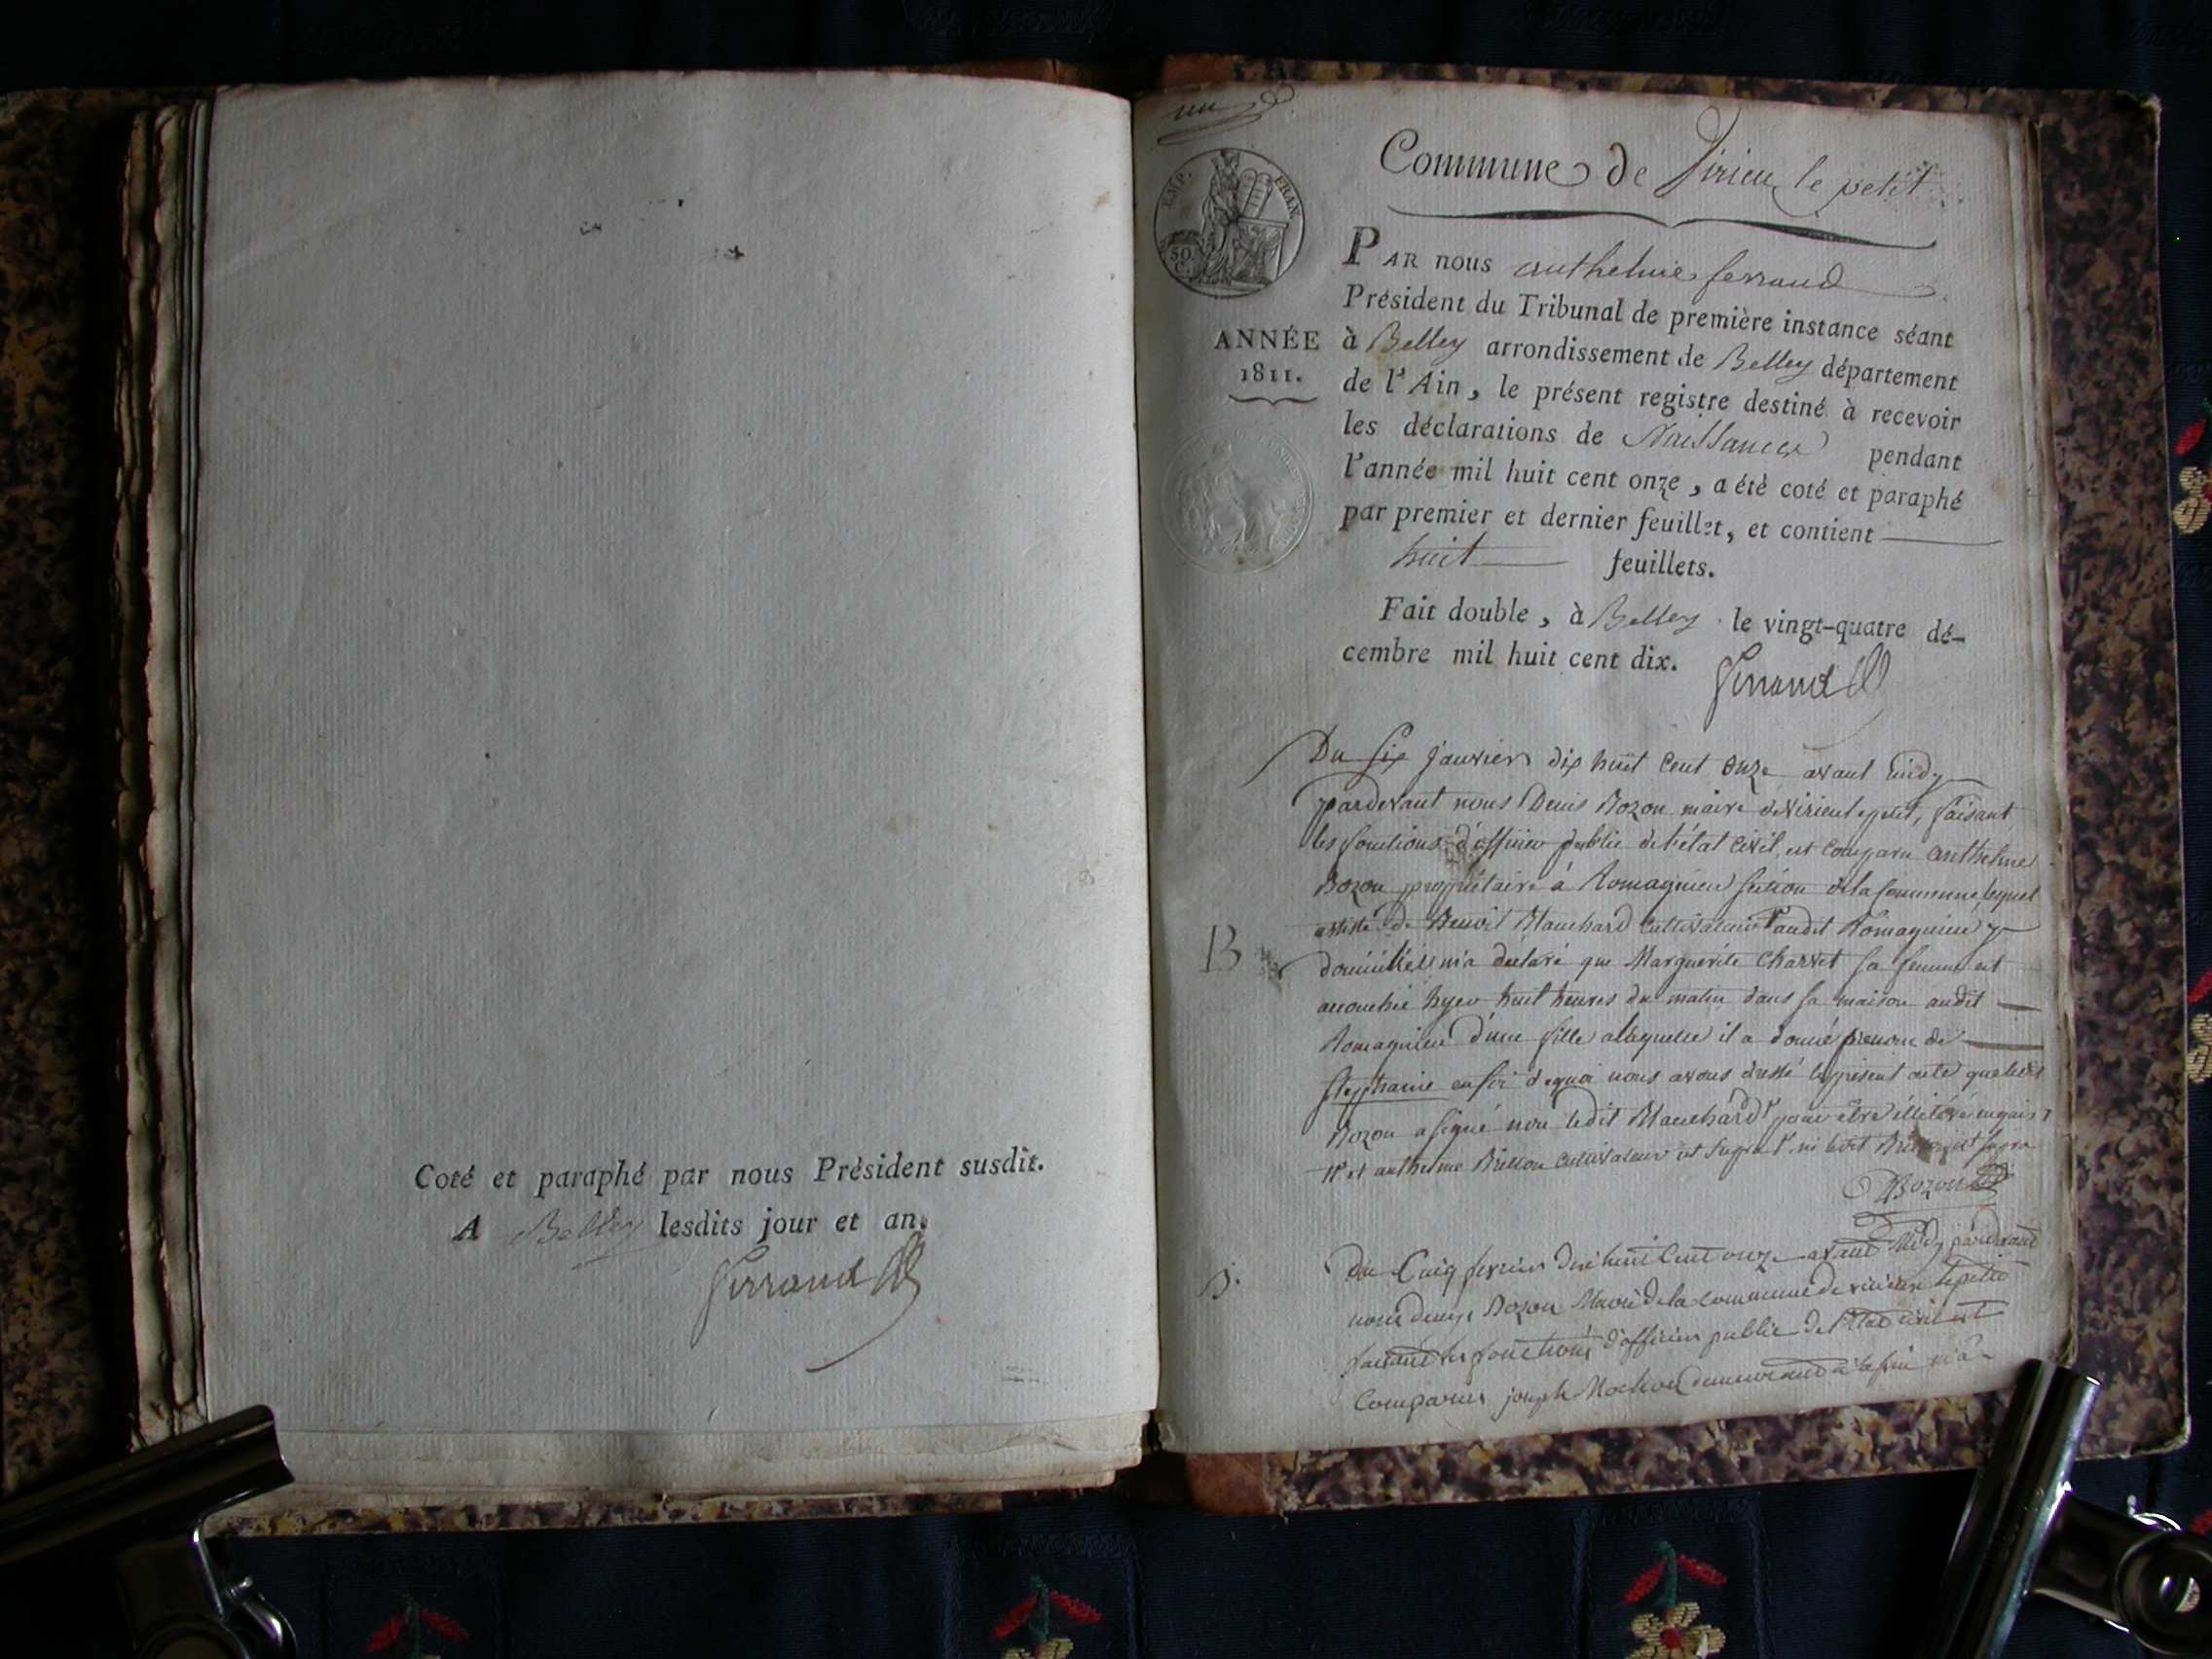 Coté et paraphé par nous Président susdit.
A Belley lesdits jour et an.
Ferrand
un
Commune de Virieu le petit
EMP. FRAN.
50 C.
ANNÉE
1811.
PAR nous anthelme ferrand
Président du Tribunal de première instance séant
à Belley arrondissement de Belley département
de l'Ain, le présent registre destiné à recevoir
les déclarations de Naissance pendant
l'année mil huit cent onze, a été coté et paraphé
par premier et dernier feuillet, et contient
huit feuillets.
Fait double, à Belley le vingt-quatre dé-
cembre mil huit cent dix.
Ferrand
Du six janvier dix huit cent onze avant midy
pardevant nous Denis Bozon maire de Virieu le petit, faisant
les fonctions d'officier public de l'état civil, est comparu anthelme
Bozon propriétaire à Romagnieu section de la Commune, lequel
assisté de Benoit Blanchard cultivateur audit Romagnieu
B
m'a déclaré que Marguerite Charvet sa femme est
accouchée hyer huit heures du matin dans sa maison audit
Romagnieu d'une fille a laquelle il a donné prenom de
Stephanie en foi de quoi nous avons dressé le présent acte que ledit
Bozon a signé non ledit Blanchard pour être
et anthelme cultivateur
Bozon
B.
Du Cinq fevrier dix huit Cent onze avant Midy pardevant
nous denys Bozon Maire de la commune de virieu le petit
faisant les fonctions d'officier public de l'Etat civil est
Comparu joseph demeurant a m'a